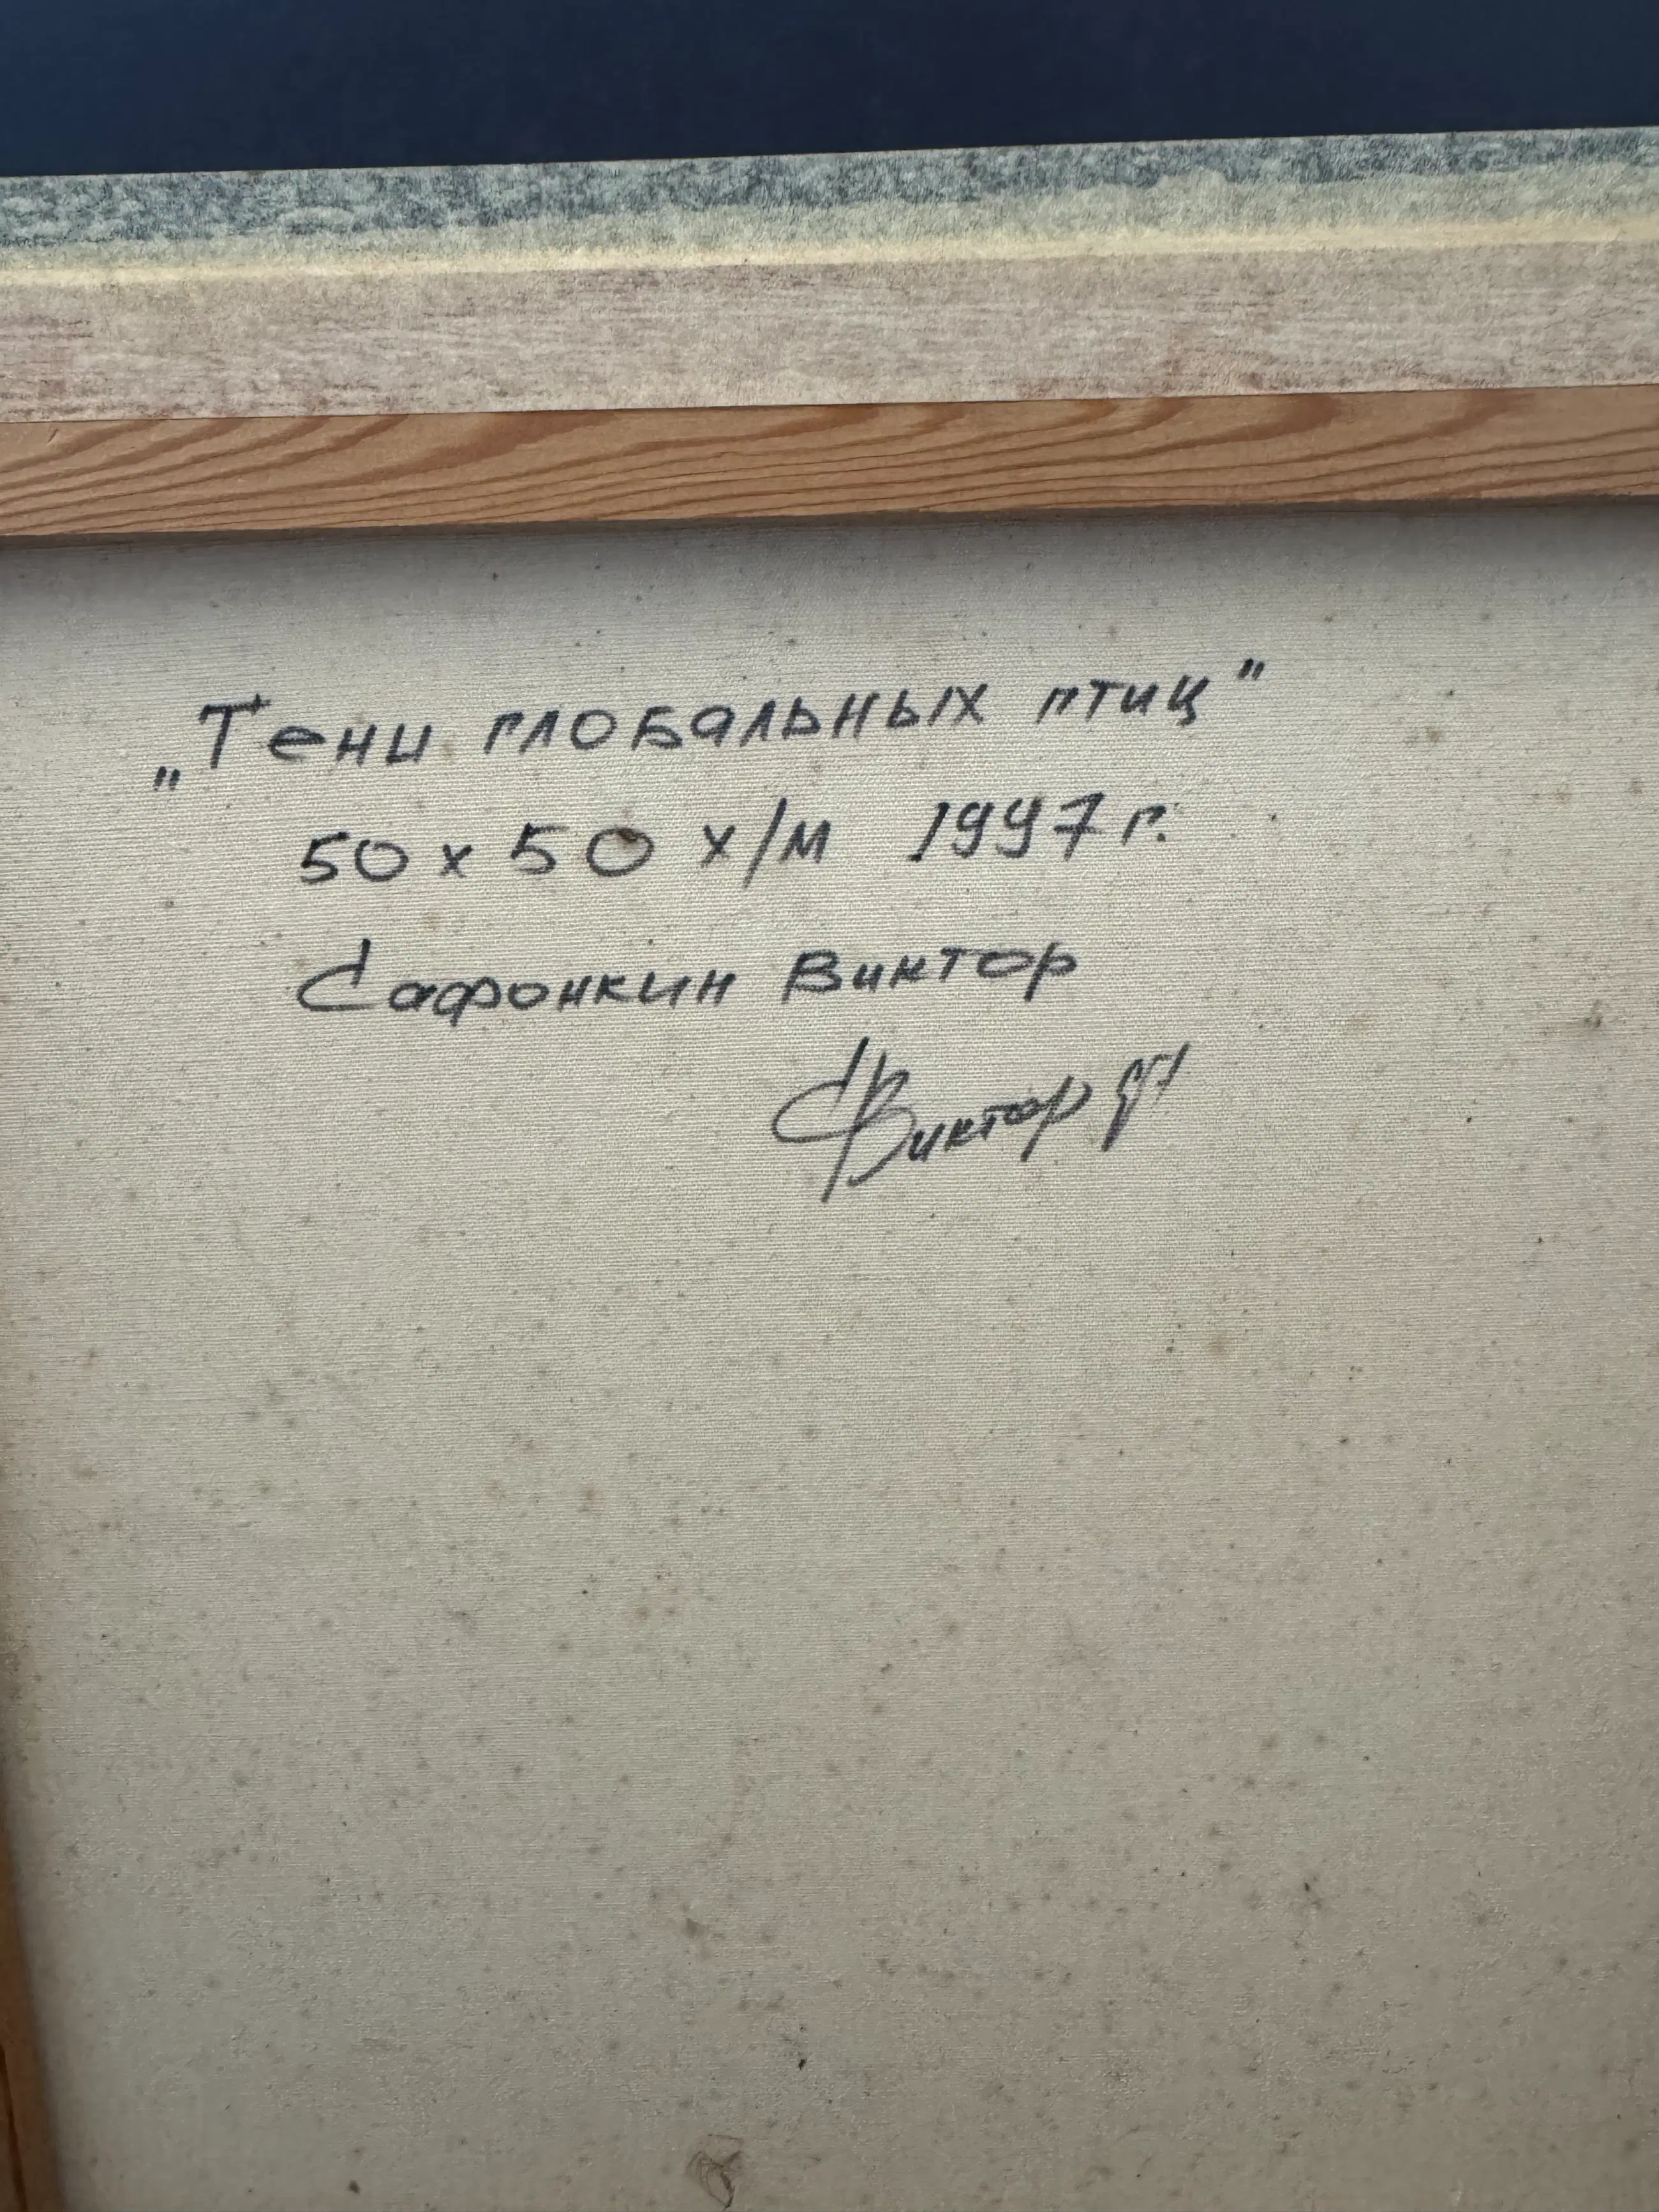 „Тени глобальных птиц"
50 x 50 х/м 1997 г.
Сафонкин Виктор
Виктор